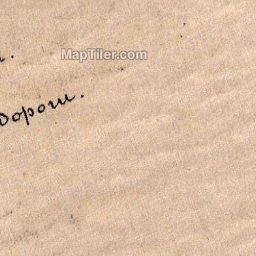 MapTiler.com
дороги.